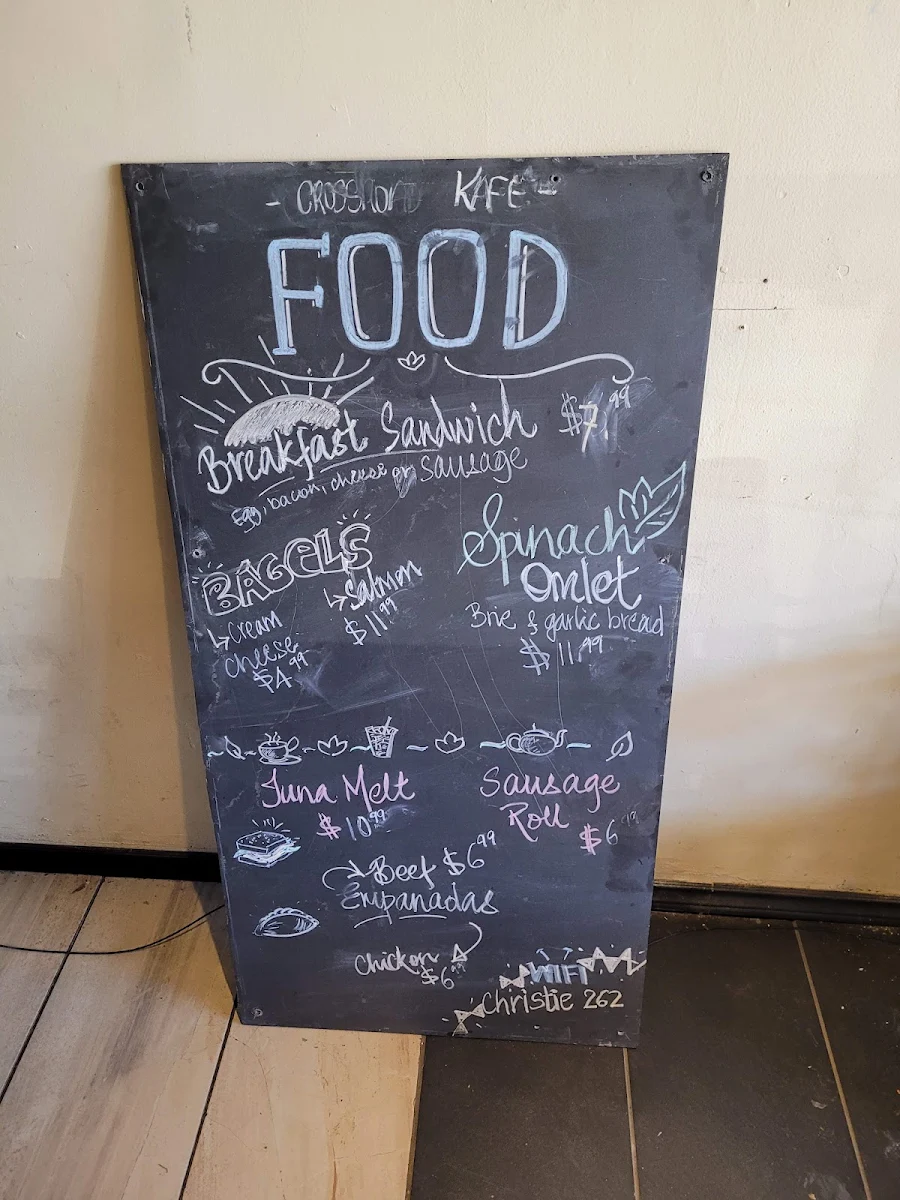 - KAFE -
FOOD
Breakfast Sandwich $7.99
Egg, bacon, cheese or sausage
BAGELS
↳ Cream
cheese
$4.99
↳ Salmon
$11.99
Spinach
Omlet
Brie & garlic bread
$11.99
Tuna Melt
$10.99
Sausage
Roll
$6.99
Beef $6.99
Empanadas
Chicken
$6.99
WIFI
Christie 262